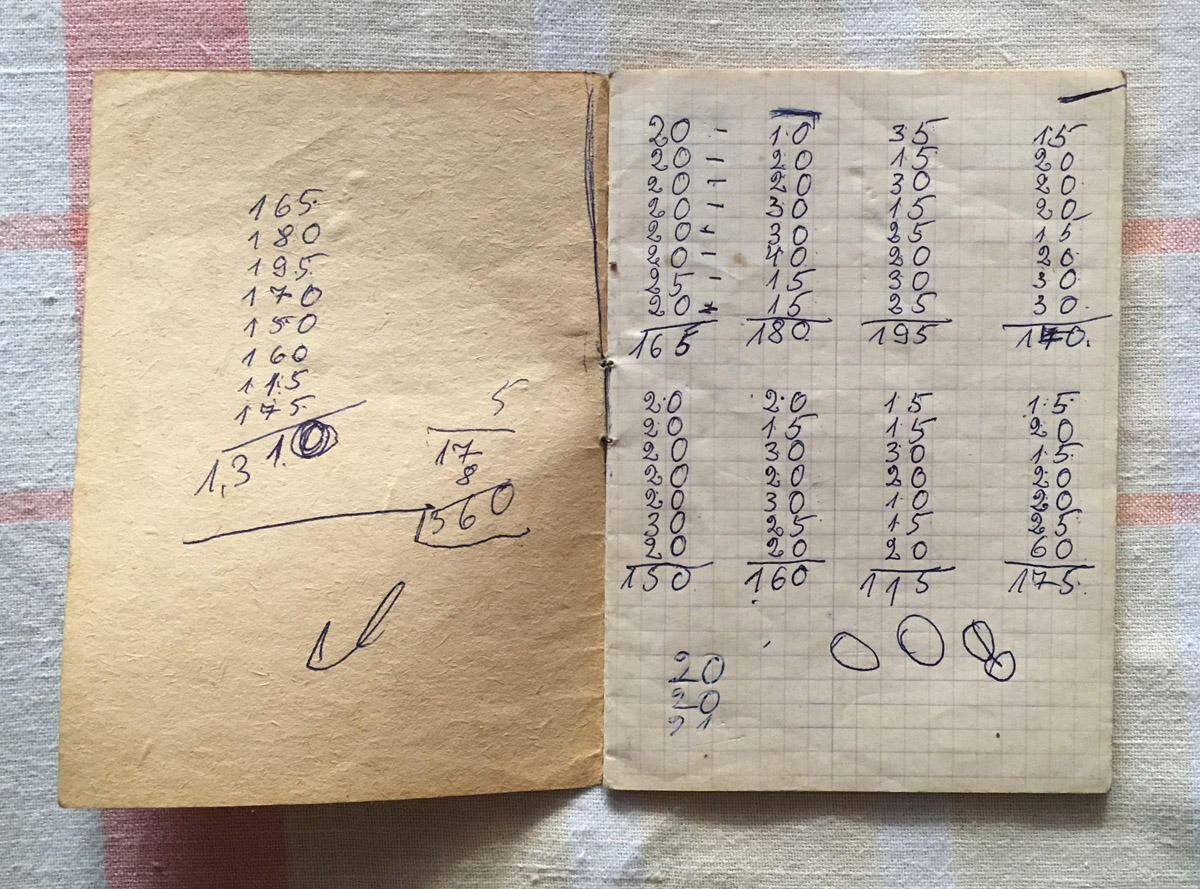 165
180
195
170
150
160
115
175
1,310
5
17
8
360
20 - 10 35 15
20 - 20 15 20
20 - 20 30 20
20 - 30 15 20
20 - 30 25 15
20 - 40 20 20
25 - 15 30 30
20 - 15 25 30
165 180 195 170.
20 20 15 15
20 15 15 20
20 30 30 15
20 20 20 20
20 30 10 20
30 25 15 25
20 20 20 60
150 160 115 175.
20
20
21